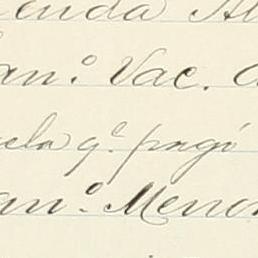 enda Al
an.º Vac. a
uela q.e pagó
an.º Menor